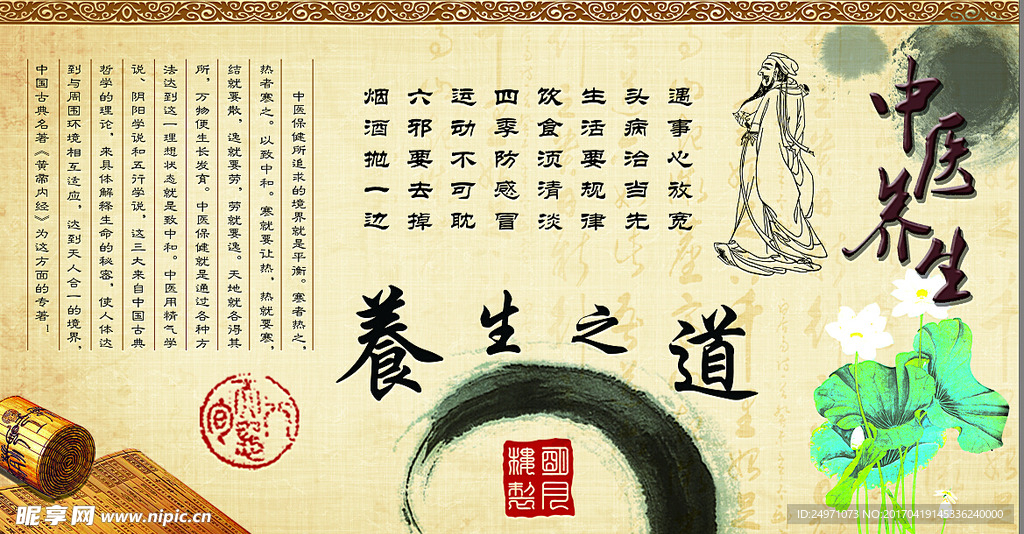 中医养生
遇事心放宽
头病治当先
生活要规律
饮食须清淡
四季防感冒
运动不可耽
六邪要去掉
烟酒抛一边
養生之道
中医保健所追求的境界就是平衡。寒者热之，
热者寒之。以致中和。寒就要让热，热就要寒，
结就要散，逸就要劳，劳就要逸。天地就各得其
所，万物便生长发育。中医保健就是通过各种方
法达到这一理想状态就是致中和。中医用精气学
说、阴阳学说和五行学说，这三大来自中国古典
哲学的理论，来具体解释生命的秘密，使人体达
到与周围环境相互适应，达到天人合一的境界，
中国古典名著《黄帝内经》为这方面的专著！
明月
楼製
昵享网 www.nipic.cn
ID:24971073 NO:20170419145336240000